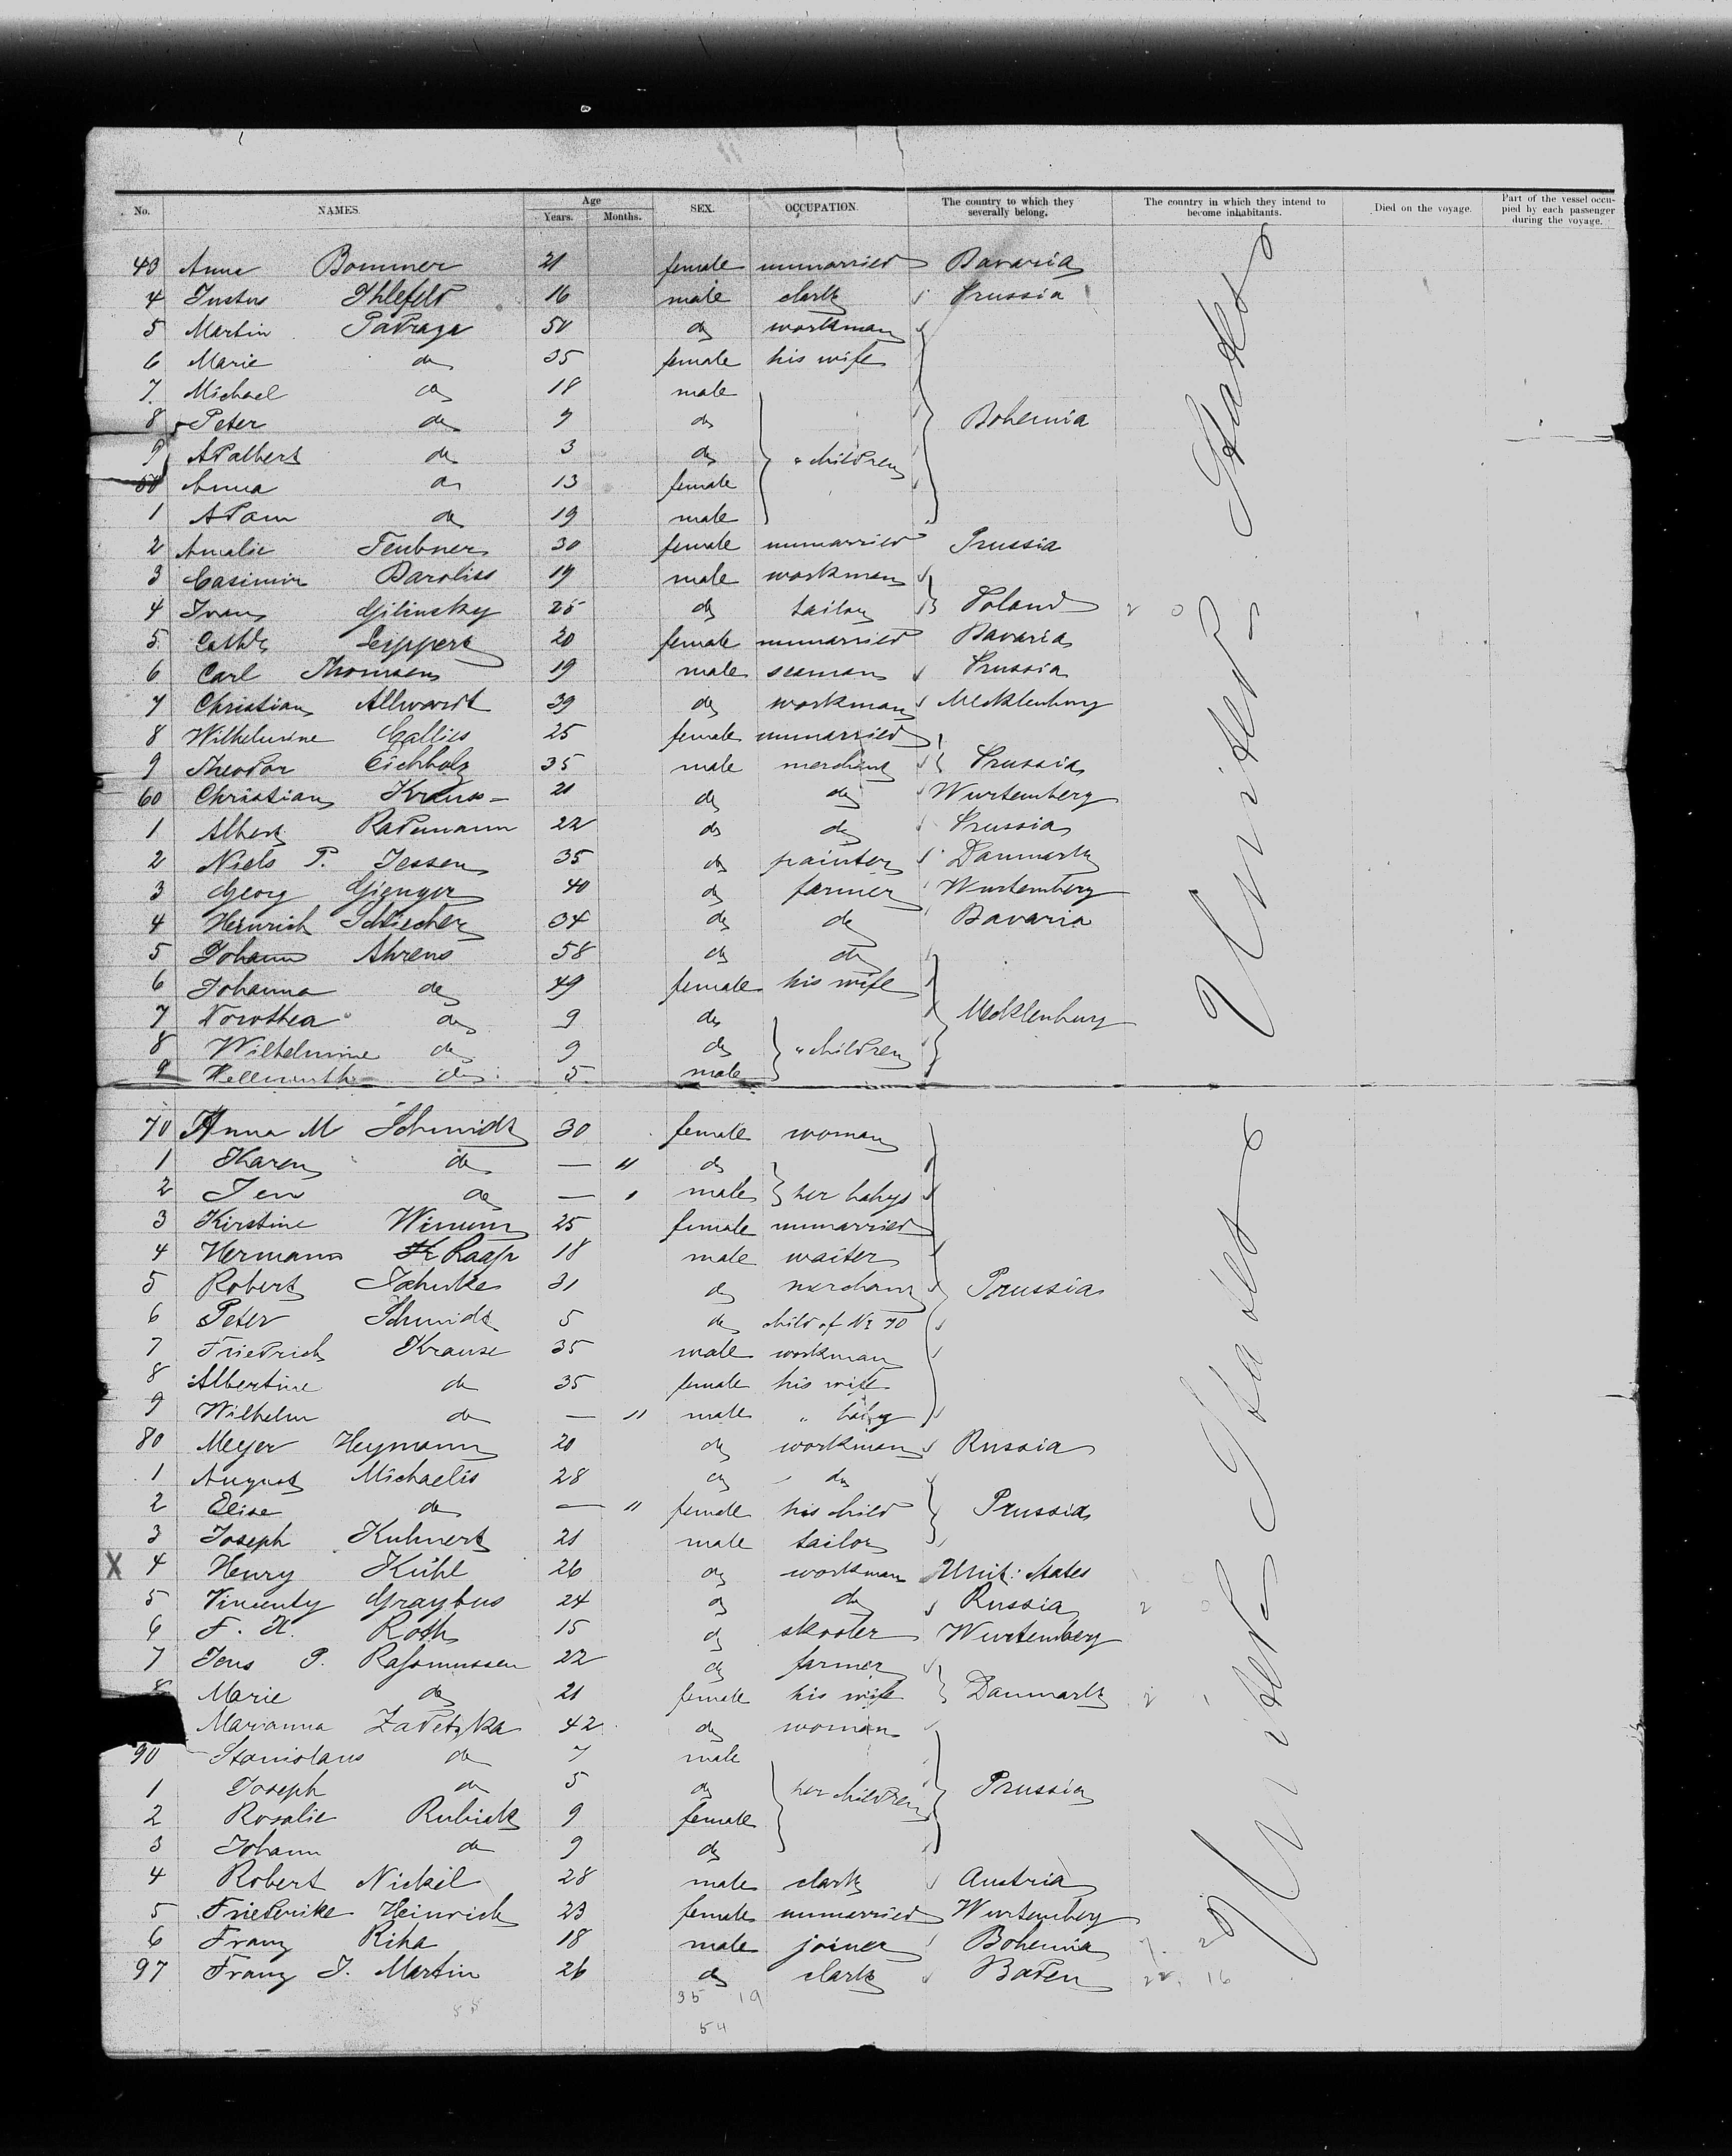 No. NAMES. Age Years. Months. SEX. OCCUPATION. The country to which they severally belong. The country in which they intend to become inhabitants. Died on the voyage. Part of the vessel occupied by each passenger during the voyage.
43 Anna Bommer 21 female unmarried Bavaria
4 Justus Ihlefeld 16 male clark Prussia
5 Martin Padraza 50 do workman
6 Marie do 35 female his wife
7 Michael do 18 male
8 Peter do 9 do Bohemia
9 Adalbert do 3 do " children
50 Anna do 13 female
1 Adam do 19 male
2 Amalie Teubner 30 female unmarried Prussia
3 Casimir Baroliss 19 male workman
4 Ivan Gilinsky 25 do tailor Poland
5 Cathr Leppert 20 female unmarried Bavaria
6 Carl Thomsen 19 male seaman Prussia
7 Christian Allwardt 39 do workman Mecklenburg
8 Wilhelmine Callies 25 female unmarried
9 Theodor Eichholz 35 male merchant Prussia
60 Christian Krauss 21 do do Wurtemberg
1 Albert Rademann 22 do do Prussia
2 Niels P. Jessen 35 do painter Danmark
3 Georg Gienger 40 do farmer Wurtemberg
4 Heinrich Schliecher 34 do do Bavaria
5 Johann Ahrens 58 do do
6 Johanna do 49 female his wife
7 Dorothea do 9 do Mecklenburg
8 Wilhelmine do 9 do " children
9 Hellmuth do 5 male
United States
70 Anna M Schmidt 30 female woman
1 Karen do — " do
2 Jen do — " male her babys
3 Kirstine Wimm 25 female unmarried
4 Hermann Raap 18 male waiter
5 Robert Jahnke 31 do merchant Prussia
6 Peter Schmidt 5 do child of Nr 70
7 Friedrich Krause 35 male workman
8 Albertine do 35 female his wife
9 Wilhelm do — " male " baby
80 Meyer Heymann 20 do workman Russia
1 August Michaelis 28 do do
2 Elise do — " female his child Prussia
3 Joseph Kuhnert 21 male tailor
X 4 Henry Kühl 26 do workman Unit: States
5 Vincenty Graybus 24 do do Russia
6 F. K. Roth 15 do skooler Wurtemberg
7 Jens P. Rasmussen 22 do farmer
8 Marie do 21 female his wife Danmark
Marianna Zadetzka 42 do woman
90 Stanislaus do 7 male
1 Joseph do 5 do her children Prussia
2 Rosalie Rubick 9 female
3 Johann do 9 do
4 Robert Nickel 28 male clark Austria
5 Friederike Heinrich 23 female unmarried Wurtemberg
6 Franz Riha 18 male joiner Bohemia
97 Franz J. Martin 26 do clark Baden
United States
35 19
54